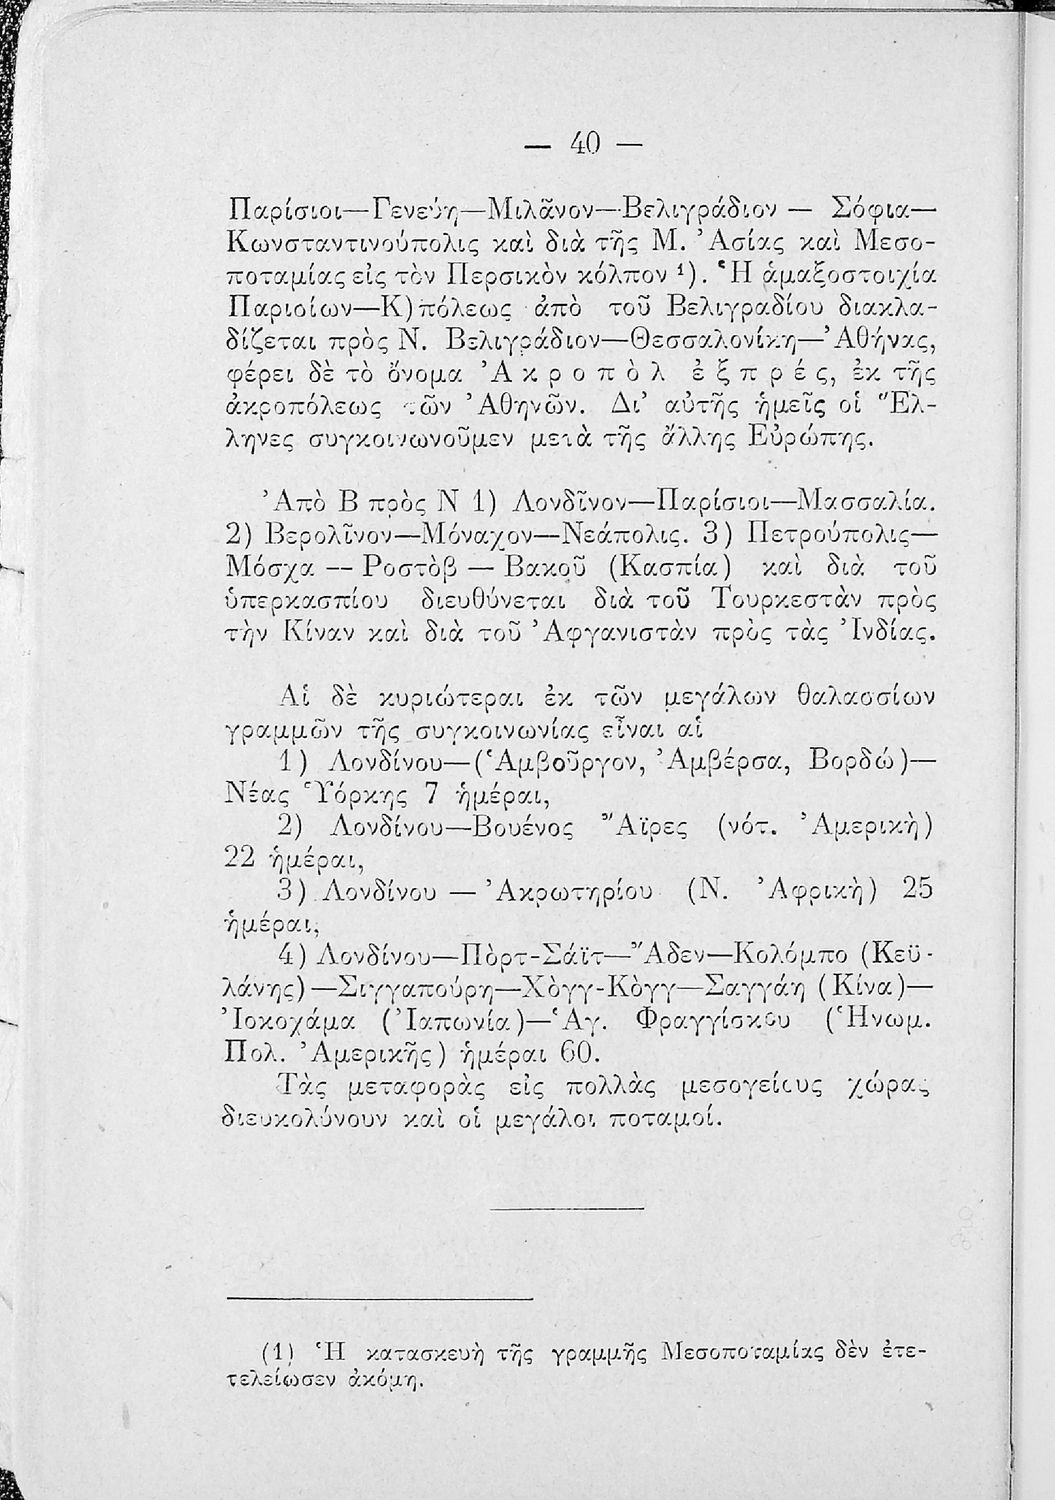 — 40 —
Παρίσιοι—Γενεύη—Μιλᾶνον—Βελιγράδιον — Σόφια—
Κωνσταντινούπολις καὶ διὰ τῆς Μ. Ἀσίας καὶ Μεσο-
ποταμίας εἰς τὸν Περσικὸν κόλπον ¹). Ἡ ἁμαξοστοιχία
Παρισίων—Κ)πόλεως ἀπὸ τοῦ Βελιγραδίου διακλα-
δίζεται πρὸς Ν. Βελιγράδιον—Θεσσαλονίκη—Ἀθήνας,
φέρει δὲ τὸ ὄνομα Ἀ κ ρ ο π ὸ λ ἐ ξ π ρ έ ς, ἐκ τῆς
ἀκροπόλεως τῶν Ἀθηνῶν. Δι᾽ αὐτῆς ἡμεῖς οἱ Ἕλ-
ληνες συγκοινωνοῦμεν μετὰ τῆς ἄλλης Εὐρώπης.
Ἀπὸ Β πρὸς Ν 1) Λονδῖνον—Παρίσιοι—Μασσαλία.
2) Βερολῖνον—Μόναχον—Νεάπολις. 3) Πετρούπολις—
Μόσχα — Ροστὸβ — Βακοῦ (Κασπία) καὶ διὰ τοῦ
ὑπερκασπίου διευθύνεται διὰ τοῦ Τουρκεστὰν πρὸς
τὴν Κίναν καὶ διὰ τοῦ Ἀφγανιστὰν πρὸς τὰς Ἰνδίας.
Αἱ δὲ κυριώτεραι ἐκ τῶν μεγάλων θαλασσίων
γραμμῶν τῆς συγκοινωνίας εἶναι αἱ
1) Λονδίνου—(Ἁμβοῦργον, Ἀμβέρσα, Βορδώ)—
Νέας Ὑόρκης 7 ἡμέραι,
2) Λονδίνου—Βουένος Ἄϊρες (νότ. Ἀμερικὴ)
22 ἡμέραι,
3) Λονδίνου — Ἀκρωτηρίου (Ν. Ἀφρικὴ) 25
ἡμέραι,
4) Λονδίνου—Πὸρτ-Σάϊτ—Ἄδεν—Κολόμπο (Κεϋ-
λάνης)—Σιγγαπούρη—Χὸγγ-Κὸγγ—Σαγγάη (Κίνα)—
Ἰοκοχάμα (Ἰαπωνία)—Ἁγ. Φραγγίσκου (Ἡνωμ.
Πολ. Ἀμερικῆς) ἡμέραι 60.
Τὰς μεταφορὰς εἰς πολλὰς μεσογείους χώρας
διευκολύνουν καὶ οἱ μεγάλοι ποταμοί.
(1) Ἡ κατασκευὴ τῆς γραμμῆς Μεσοποταμίας δὲν ἐτε-
τελείωσεν ἀκόμη.